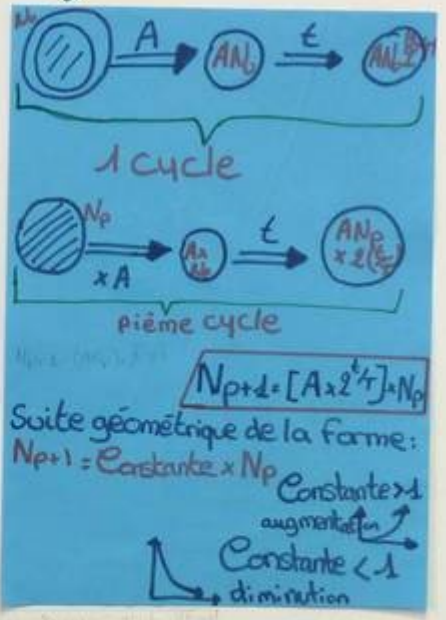 N₀ A AN₀ t
1 cycle
Np t ANp
x A x 2(t/T)
pième cycle
Np+1 = [A x 2^t/T] x Np
Suite géométrique de la forme:
Np+1 = Constante x Np
Constante > 1
augmentation
Constante < 1
diminution